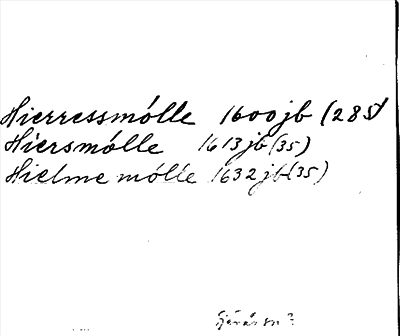 Hierressmólle 1600jb (285)
Hiersmólle 1613jb (35)
Hielme mólle 1632jb (35)